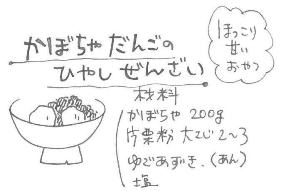 かぼちゃだんごの
ひやしぜんざい
ほっこり
甘い
おやつ
材料
かぼちゃ 200g
片栗粉 大さじ2〜3
ゆであずき.(あん)
塩